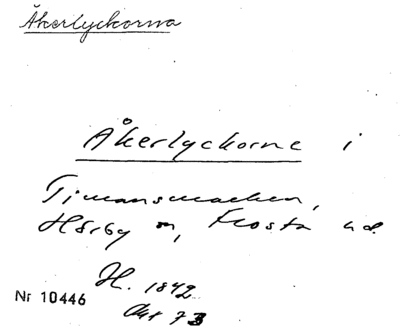 Åkerlyckorna
Åkerlyckorne i
Timansmacken,
Hörby sn, Frosta hd.
H. 1842
Akt 73
Nr 10446